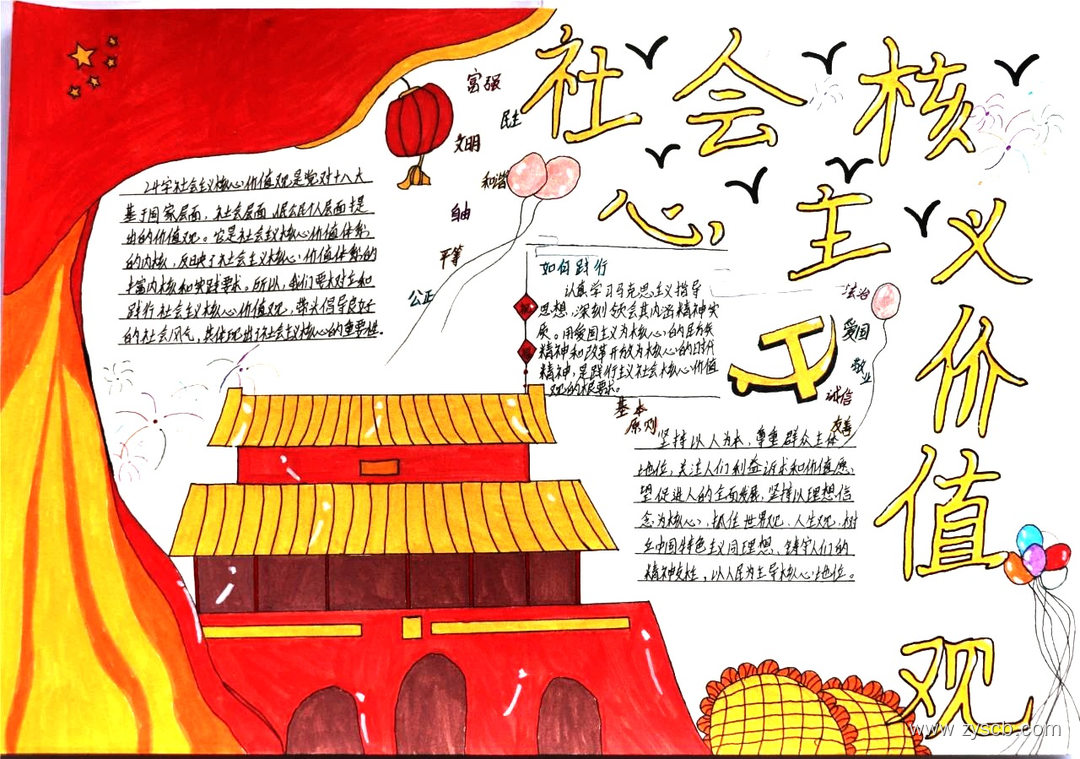 社会核
心主义
价
值
观
富强
民主
文明
和谐
自由
平等
公正
法治
爱国
敬业
诚信
友善
24字社会主义核心价值观是党对十八大
基于国家层面,社会层面,公民个人层面提
出的价值观。它是社会主义核心价值体系
的内核,反映了社会主义核心价值体系的
丰富内核和实践要求。所以,我们要树立和
践行社会主义核心价值观,带头倡导良好
的社会风气,具体现出社会主义核心的重要性.
如何践行
认真学习马克思主义指导
思想,深刻领会其内涵精神实
质。用爱国主义为核心的民族
精神和改革开放为核心的时代
精神,是践行主义社会核心价值
观的根要求。
基本
原则
坚持以人为本,尊重群众主体
地位,关注人们利益诉求和价值愿
望促进人的全面发展,坚持以理想信
念为核心,抓住世界观、人生观,树
立中国特色主义同理想,铸守人们的
精神支柱,以人民为主导核心地位。
www.zyscb.com